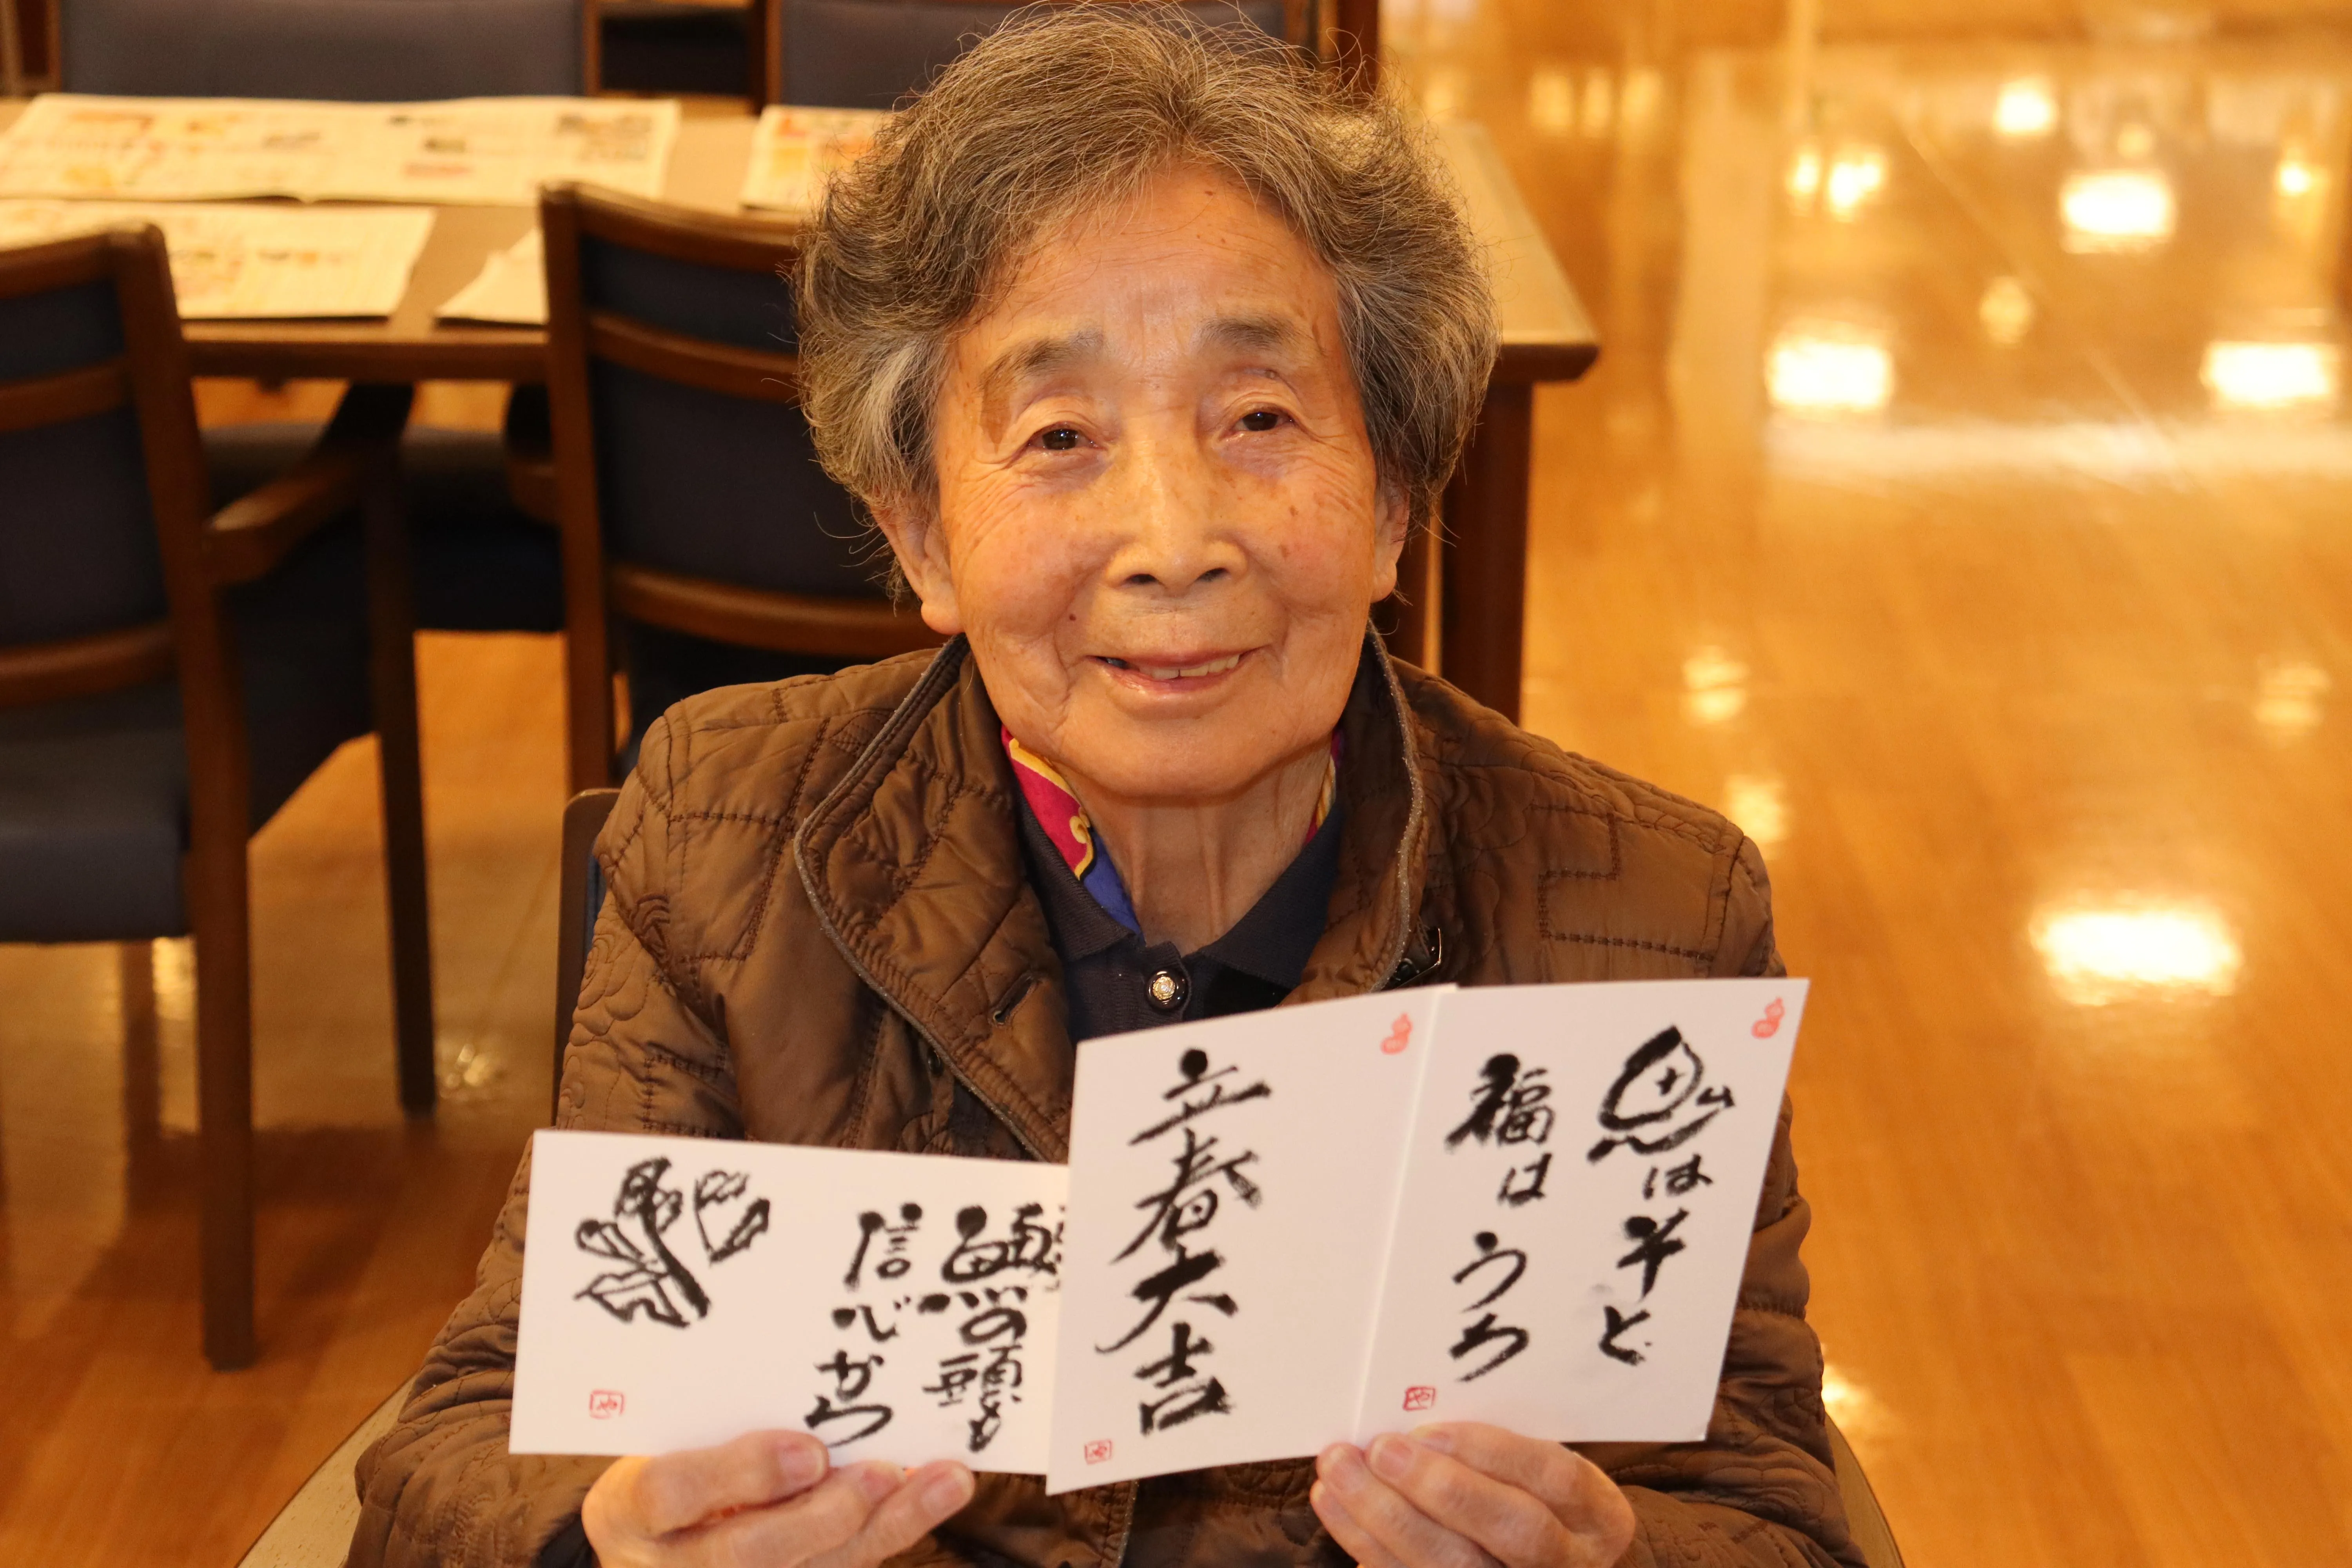 鬼はそと
福はうち
や
立春大吉
や
鰯の頭も
信心から
や